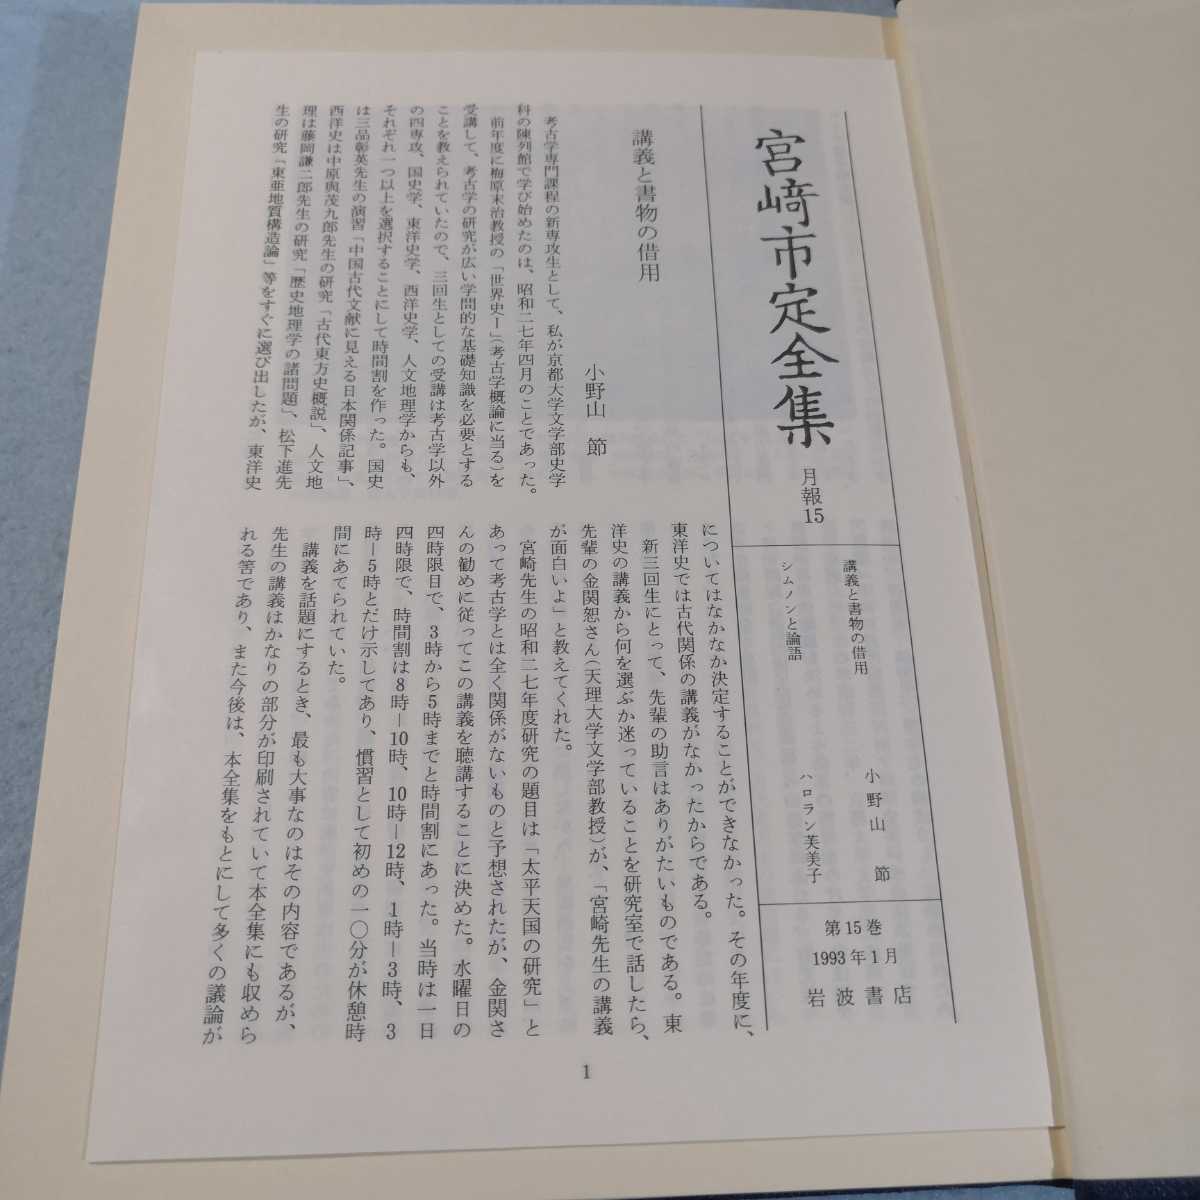 宮﨑市定全集
月報15
講義と書物の借用
小野山　節
シムノンと論語
ハロラン芙美子
第15巻
1993年1月
岩波書店
講義と書物の借用
小野山　節
考古学専門課程の新専攻生として、私が京都大学文学部史学
科の陳列館で学び始めたのは、昭和二七年四月のことであった。
前年度に梅原末治教授の「世界史Ⅰ」(考古学概論に当る)を
受講して、考古学の研究が広い学問的な基礎知識を必要とする
ことを教えられていたので、三回生としての受講は考古学以外
の四専攻、国史学、東洋史学、西洋史学、人文地理学からも、
それぞれ一つ以上を選択することにして時間割を作った。国史
は三品彰英先生の演習「中国古代文献に見える日本関係記事」、
西洋史は中原與茂九郎先生の研究「古代東方史概説」、人文地
理は藤岡謙二郎先生の研究「歴史地理学の諸問題」、松下進先
生の研究「東亜地質構造論」等をすぐに選び出したが、東洋史
についてはなかなか決定することができなかった。その年度に、
東洋史では古代関係の講義がなかったからである。
新三回生にとって、先輩の助言はありがたいものである。東
洋史の講義から何を選ぶか迷っていることを研究室で話したら、
先輩の金関恕さん(天理大学文学部教授)が、「宮崎先生の講義
が面白いよ」と教えてくれた。
宮崎先生の昭和二七年度研究の題目は「太平天国の研究」と
あって考古学とは全く関係がないものと予想されたが、金関さ
んの勧めに従ってこの講義を聴講することに決めた。水曜日の
四時限目で、3時から5時までと時間割にあった。当時は一日
四時限で、時間割は8時―10時、10時―12時、1時―3時、3
時―5時とだけ示してあり、慣習として初めの一〇分が休憩時
間にあてられていた。
講義を話題にするとき、最も大事なのはその内容であるが、
先生の講義はかなりの部分が印刷されていて本全集にも収めら
れる筈であり、また今後は、本全集をもとにして多くの議論が
1